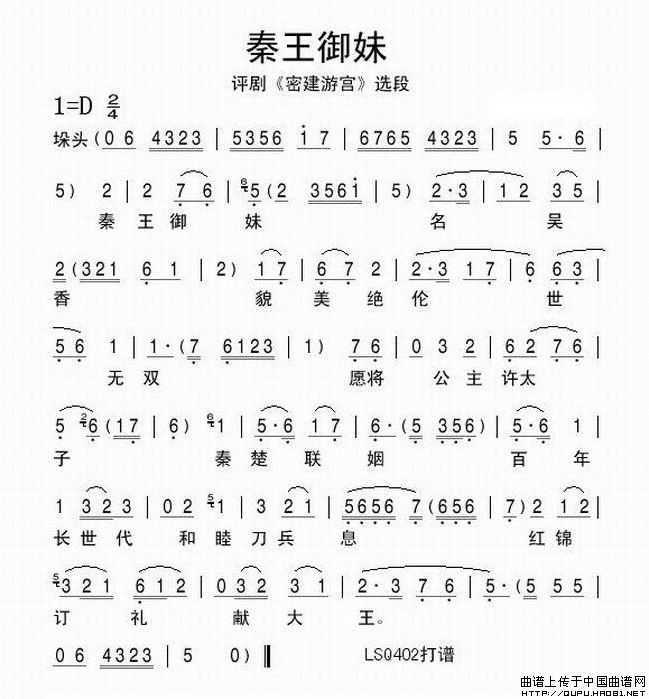 秦王御妹
评剧《密建游宫》选段
1=D 2/4
垛头 (0 6 4323 | 5356 1 7 | 6765 4323 | 5 5· 6 |
5) 2 | 2 7 6 | 6 5 (2 3561 | 5) 2·3 | 1 2 3 5 |
秦 王 御 妹 名 吴
2 (321 6 1 | 2) 1 7 | 6 7 2 | 2·3 1 7 | 6 6 3 |
香 貌 美 绝 伦 世
5 6 1 | 1·(7 6123 | 1) 7 6 | 0 3 2 | 6 2 7 6 |
无 双 愿将 公 主 许太
5 2 6 (17 | 6) 6 1 | 5·6 1 7 | 6·(5 356) | 5·6 1 |
子 秦 楚 联 姻 百 年
1 3 2 3 | 0 2 5 1 | 3 2 1 | 5656 7 (656 | 7) 2 1 2 |
长 世 代 和 睦 刀 兵 息 红 锦
5 3 2 1 6 1 2 | 0 3 2 3 1 | 2·3 7 6 | 5·(5 5 5 |
订 礼 献 大 王。
0 6 4323 | 5 0) ‖ LSQ402打谱
曲谱上传于中国曲谱网
HTTP://QUPU.HAO81.NET